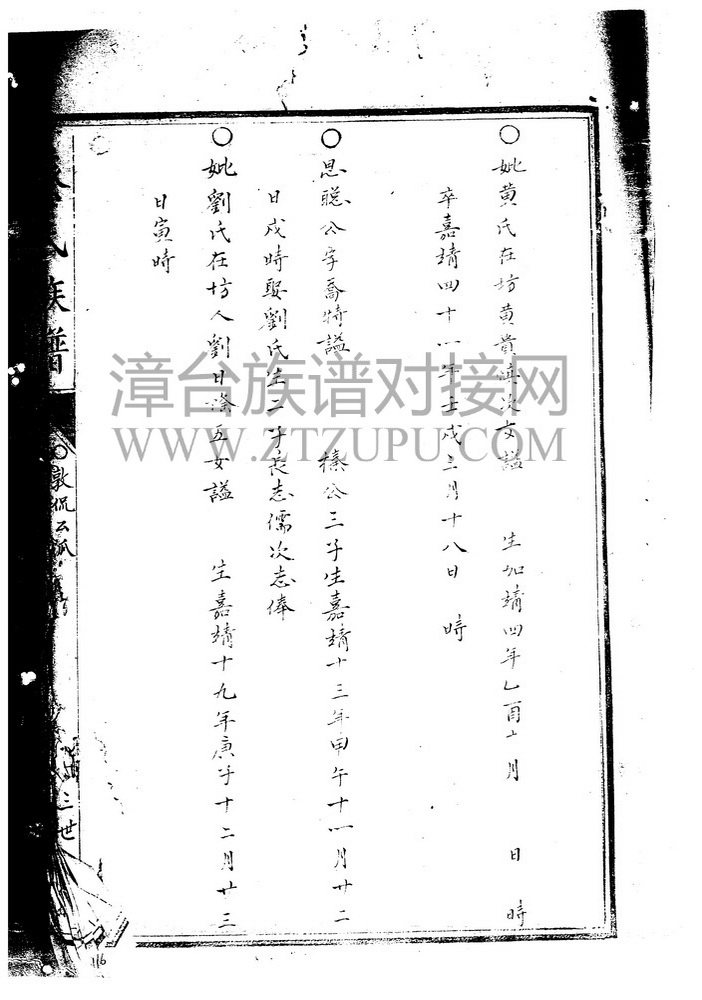 ○妣黄氏在坊黄貴 次女謚 生加靖四年乙酉十月 日 時
卒嘉靖四十一年壬戌三月十八日 時
○思聰公字喬特謚 榛公三子生嘉靖十三年甲午十一月廿二
日戌時娶劉氏生二子長志儒次志俸
○妣劉氏在坊人劉日 五女謚 生嘉靖十九年庚子十二月廿三
日寅時
氏族譜
○敦侃公派
三世
116
漳台族谱对接网
WWW.ZTZUPU.COM